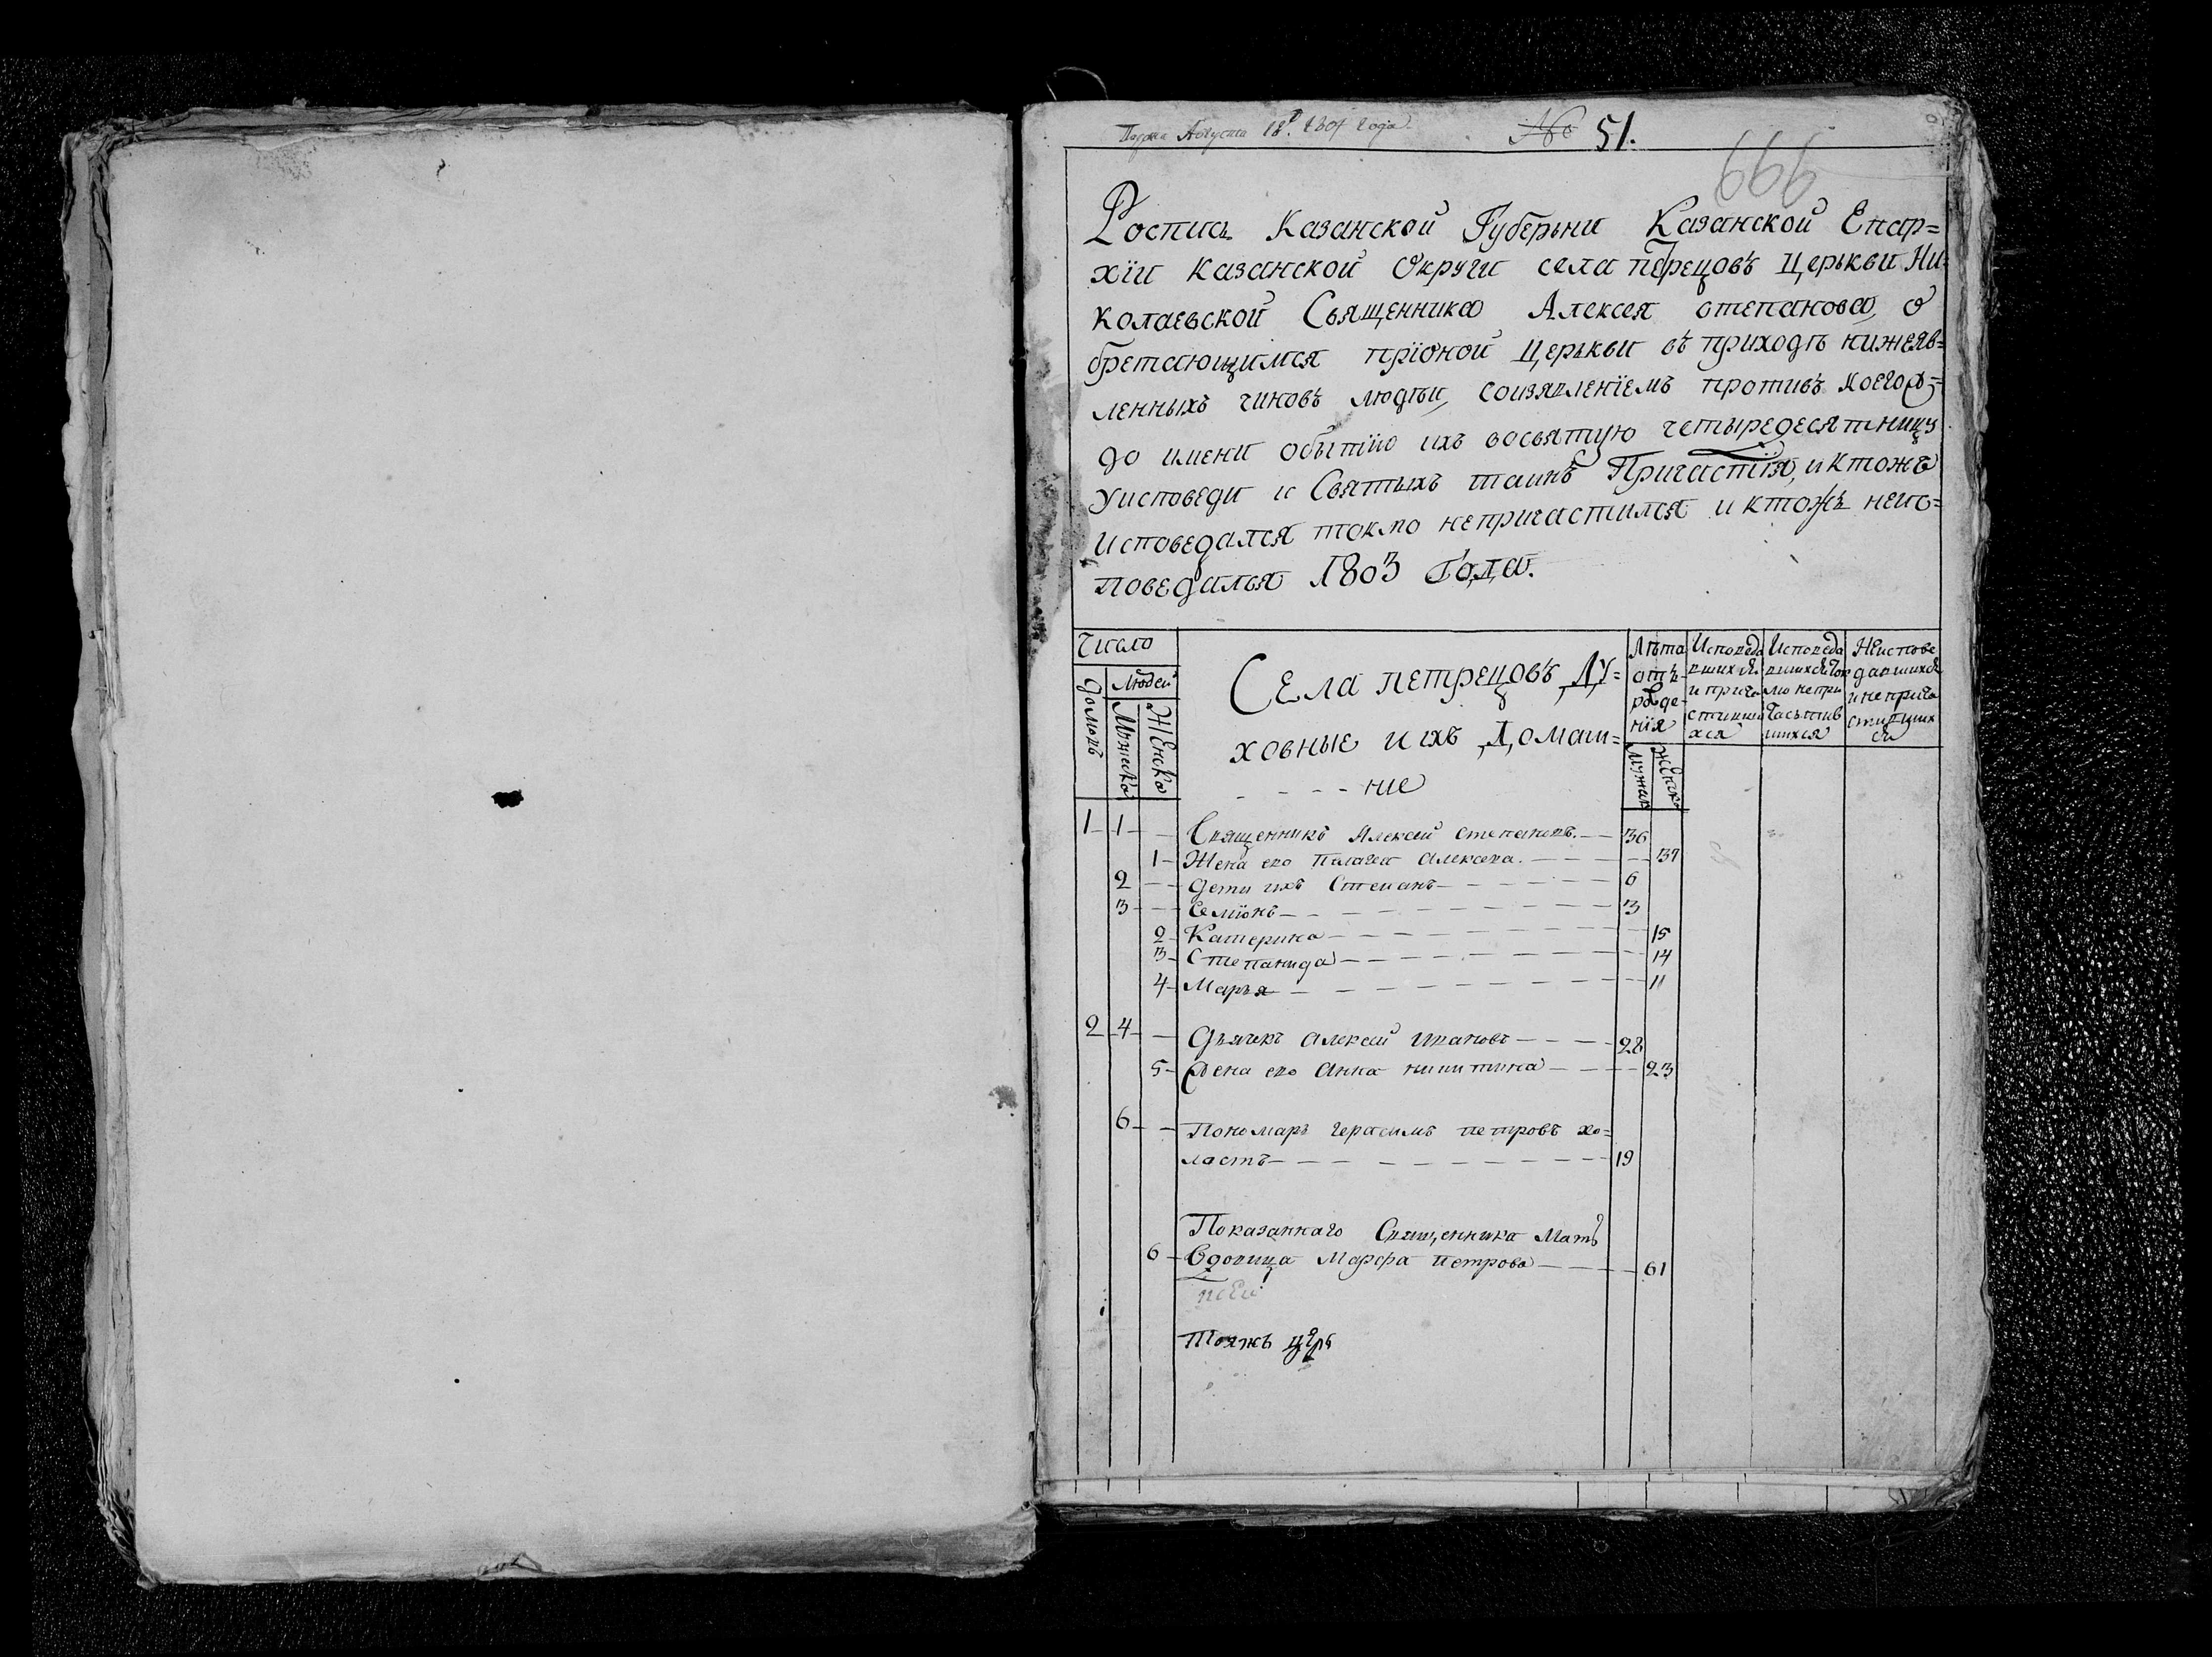 Августа 18. 1804 года.
№ 51.
666
Роспись Казанской Губерьни Казанской Епар=
хїи Казанской Округи села петрецовъ Церькви Ни=
колаевской Священника Алексея степанова, о
бретающимся прїоной Церькви въ приходѣ нижеяв=
ленныхъ чиновъ людѣи, соизявленїемъ противъ коегож=
до имени обытїю ихъ восвятую четыредесятницу
Уисповеди и Святыхъ таинъ Причастїя, и ктожъ
исповедался токмо непричастился и ктожъ неис=
поведалься 1803 Года.
Число
домовъ
Людей
Мужеска
Женска
Села петрецовъ Ду=
ховные и ихъ Домаш=
- - - - ние
Лѣта
отъ
рожде=
нїя
мужеск
женска
Исповеда
вшихся
и прича
стивши
хся
Исповеда
вшихся ток
мо непри
частив
шихся
Неиспове
давшихся
и неприча
стивших
ся
1 1 — Священникъ Алексей степановъ. — 36
1 — Жена ево Палагея Алексева. — 37
2 — дети ихъ Степанъ — 6
3 — Семїонъ — 3
2 Катерина — 15
3 — Степанида — 14
4 — Марья — 11
2 4 — Дьячекъ алексей ивановъ — 28
5 — Жена ево Анна никитина — 23
6 — Пономарь герасимъ петровъ хо=
ластъ — 19
Показаннаго Священника Мать
6 — Вдовица Марфа петрова — 61
всей
Тояжъ церь